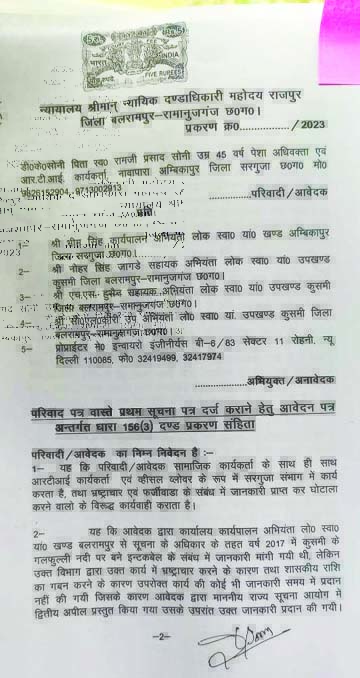 भारत
INDIA
FIVE RUPEES
न्यायालय श्रीमान् न्यायिक दण्डाधिकारी महोदय राजपुर
जिला बलरामपुर–रामानुजगंज छ०ग०।
प्रकरण क्र0................/2023
डी०के०सोनी पिता स्व० रामजी प्रसाद सोनी उम्र 45 वर्ष पेशा अधिवक्ता एवं
आर.टी.आई. कार्यकर्ता, नावापारा अम्बिकापुर जिला सरगुजा छ०ग० मो०
9826152904, 9713002913
....................परिवादी/आवेदक
1–
सिंह कार्यपालन अभियंता लोक स्वा० यां खण्ड अम्बिकापुर
जिला सरगुजा छ०ग०।
2– श्री नोहर सिंह जागडे सहायक अभियंता लोक स्वा० यां उपखण्ड
कुसमी जिला बलरामपुर–रामानुजगंज छ०ग०।
3– श्री एच.एस. हुसैन सहायक अभियंता लोक स्वा० यां उपखण्ड कुसमी
जिला बलरामपुर–रामानुजगंज छ०ग०।
4– श्री सी०एल०कोरी उप अभियंता लो० स्वा० यां. उपखण्ड कुसमी जिला
बलरामपुर–रामानुजगंज छ०ग०।
5– प्रोपाईटर मे० इन्वायरो इंजीनीर्यस बी–6/83 सेक्टर 11 रोहनी, न्यू
दिल्ली 110085, फो० 32419499, 32417974
....................अभियुक्त/अनावेदक
परिवाद पत्र वास्ते प्रथम सूचना पत्र दर्ज कराने हेतु आवेदन पत्र
अन्तर्गत धारा 156(3) दण्ड प्रकरण संहिता
परिवादी/आवेदक का निम्न निवेदन है :–
1– यह कि परिवादी/आवेदक सामाजिक कार्यकर्ता के साथ ही साथ
आरटीआई कार्यकर्ता एवं व्हीसल ब्लोवर के रूप में सरगुजा संभाग में कार्य
करता है, तथा भ्रष्टाचार एवं फर्जीवाडा के संबंध में जानकारी प्राप्त कर घोटाला
करने वालो के विरूद्ध कार्यवाही कराता है।
2– यह कि आवेदक द्वारा कार्यालय कार्यपालन अभियंता लो० स्वा०
यां० खण्ड बलरामपुर से सूचना के अधिकार के तहत वर्ष 2017 में कुसमी के
गलफुल्ली नदी पर बने इन्टकवेल के संबंध में जानकारी मांगी गयी थी, लेकिन
उक्त विभाग द्वारा उक्त कार्य में भ्रष्टाचार करने के कारण तथा शासकीय राशि
का गबन करने के कारण उपरोक्त कार्य की कोई भी जानकारी समय में प्रदान
नहीं की गयी जिसके कारण आवेदक द्वारा माननीय राज्य सूचना आयोग में
द्वितीय अपील प्रस्तुत किया गया उसके उपरांत उक्त जानकारी प्रदान की गयी।
–2–